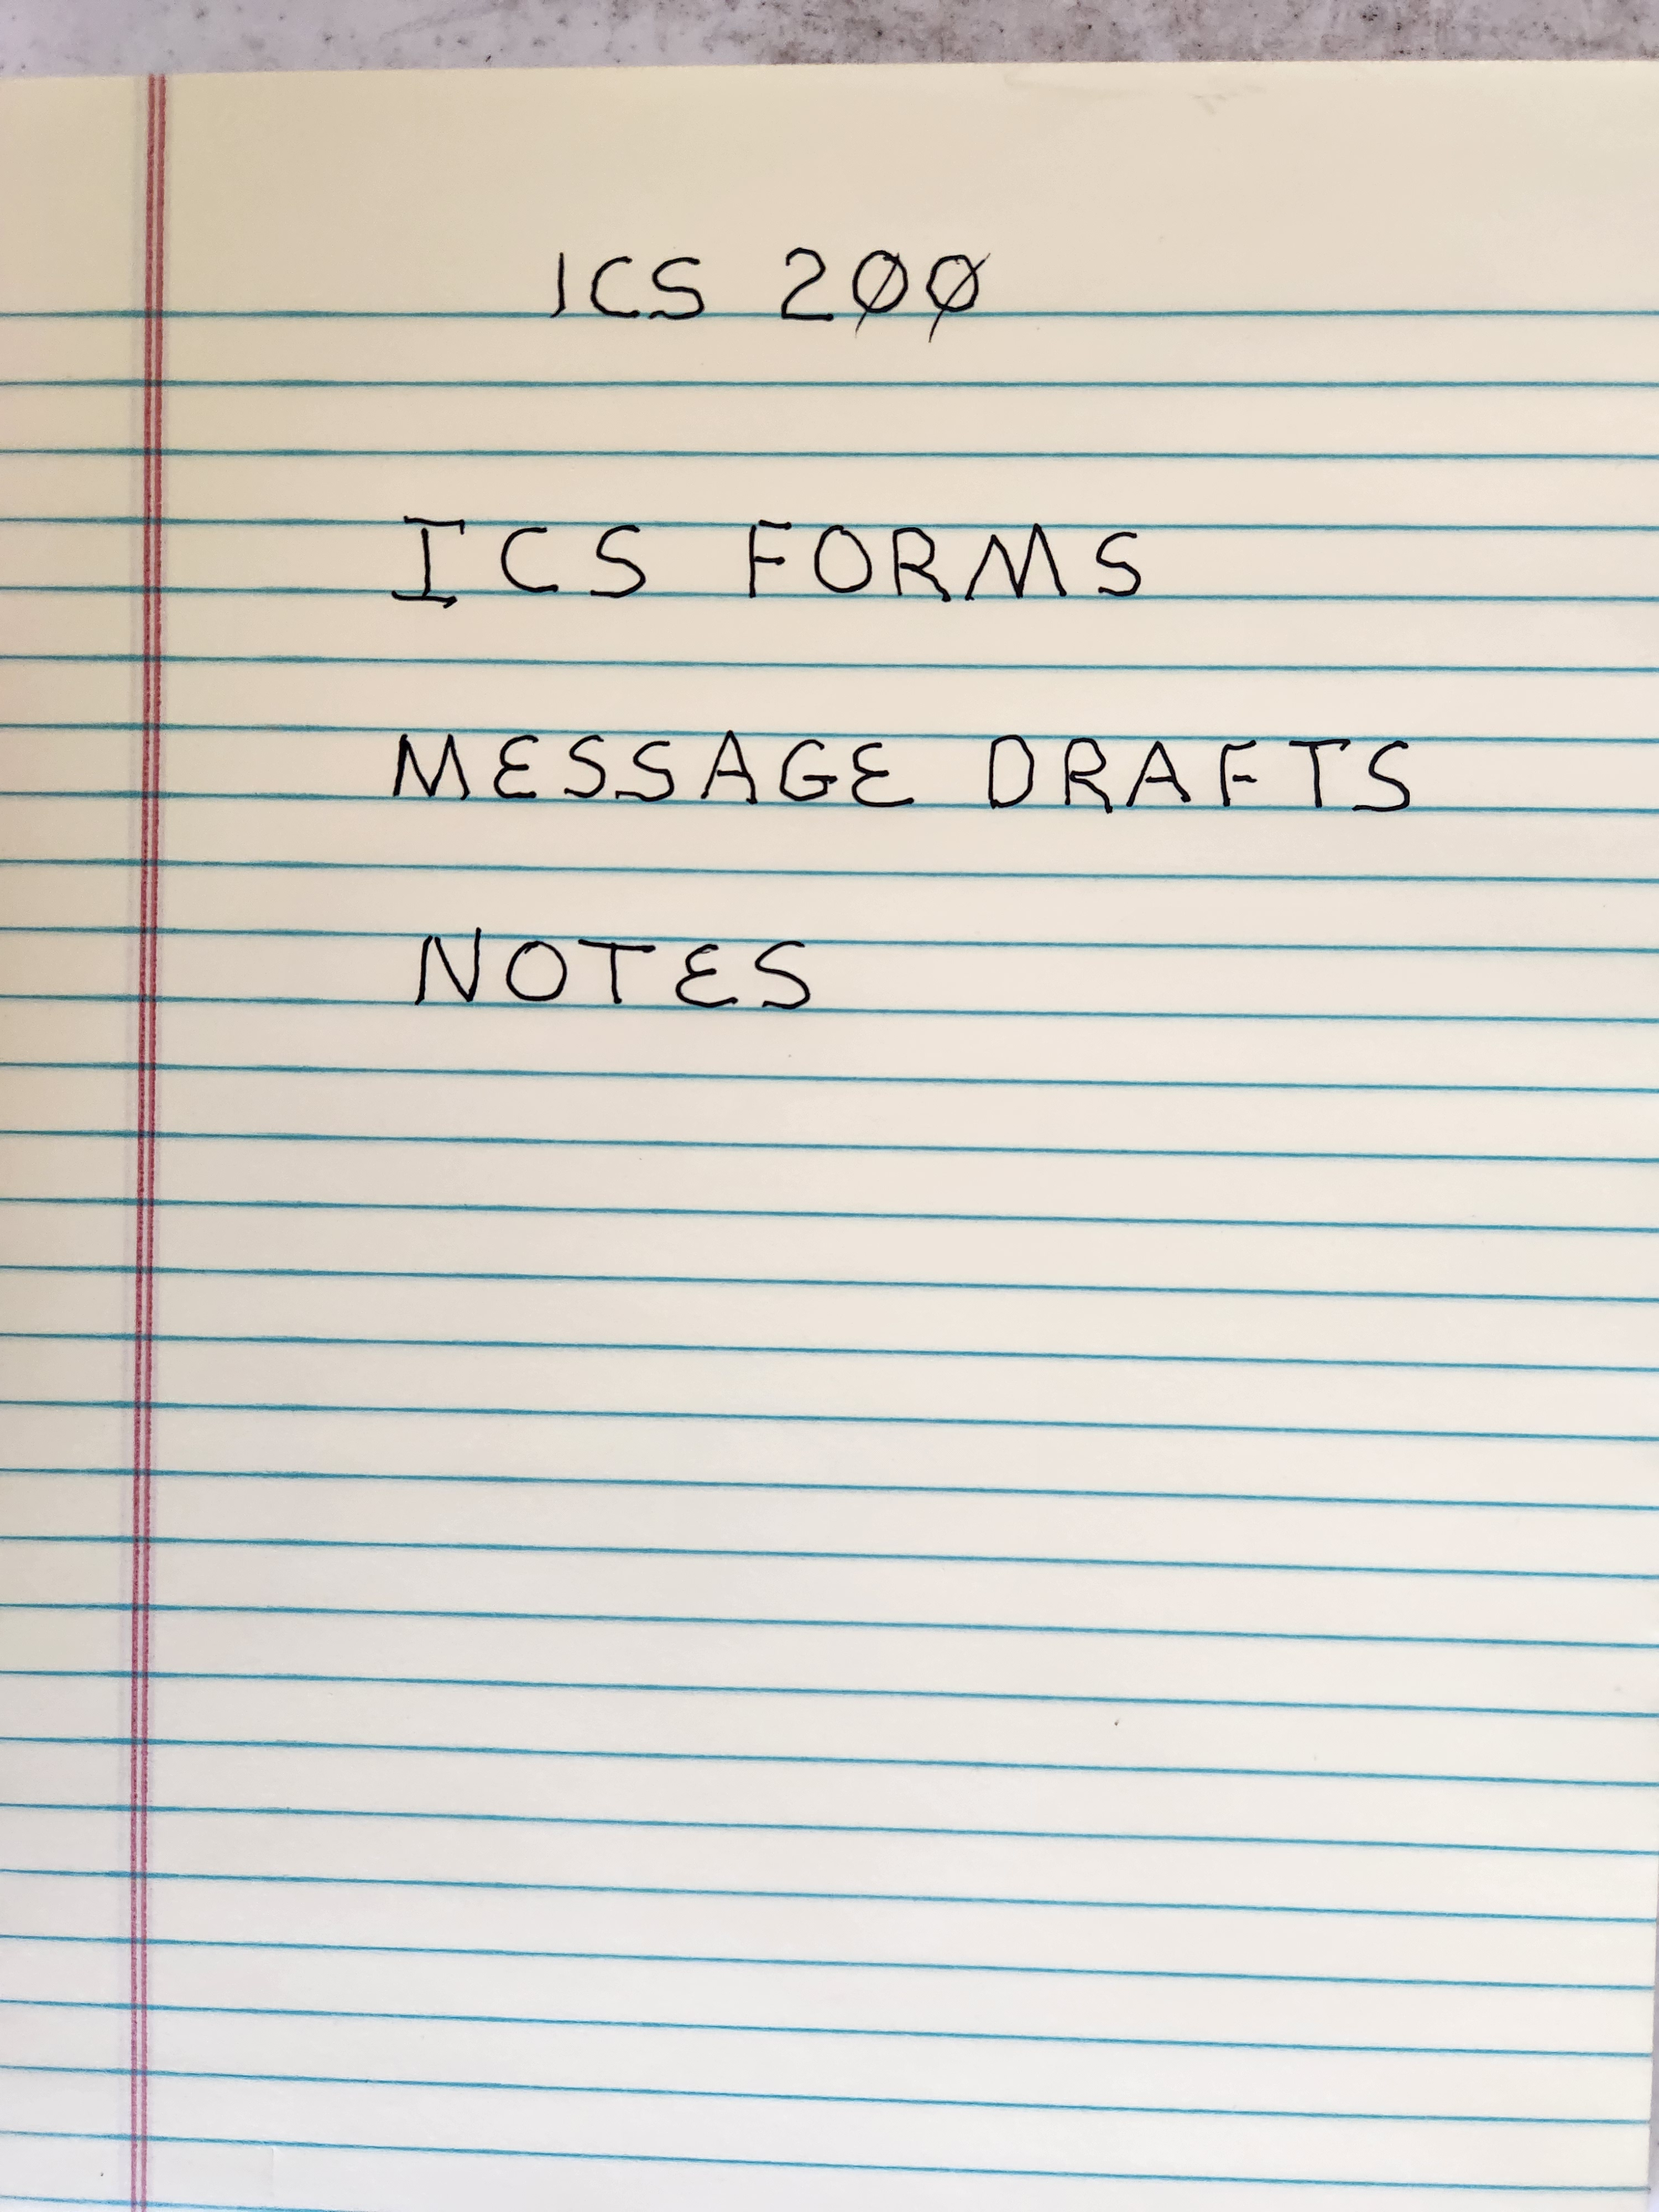 ICS 200
ICS FORMS
MESSAGE DRAFTS
NOTES